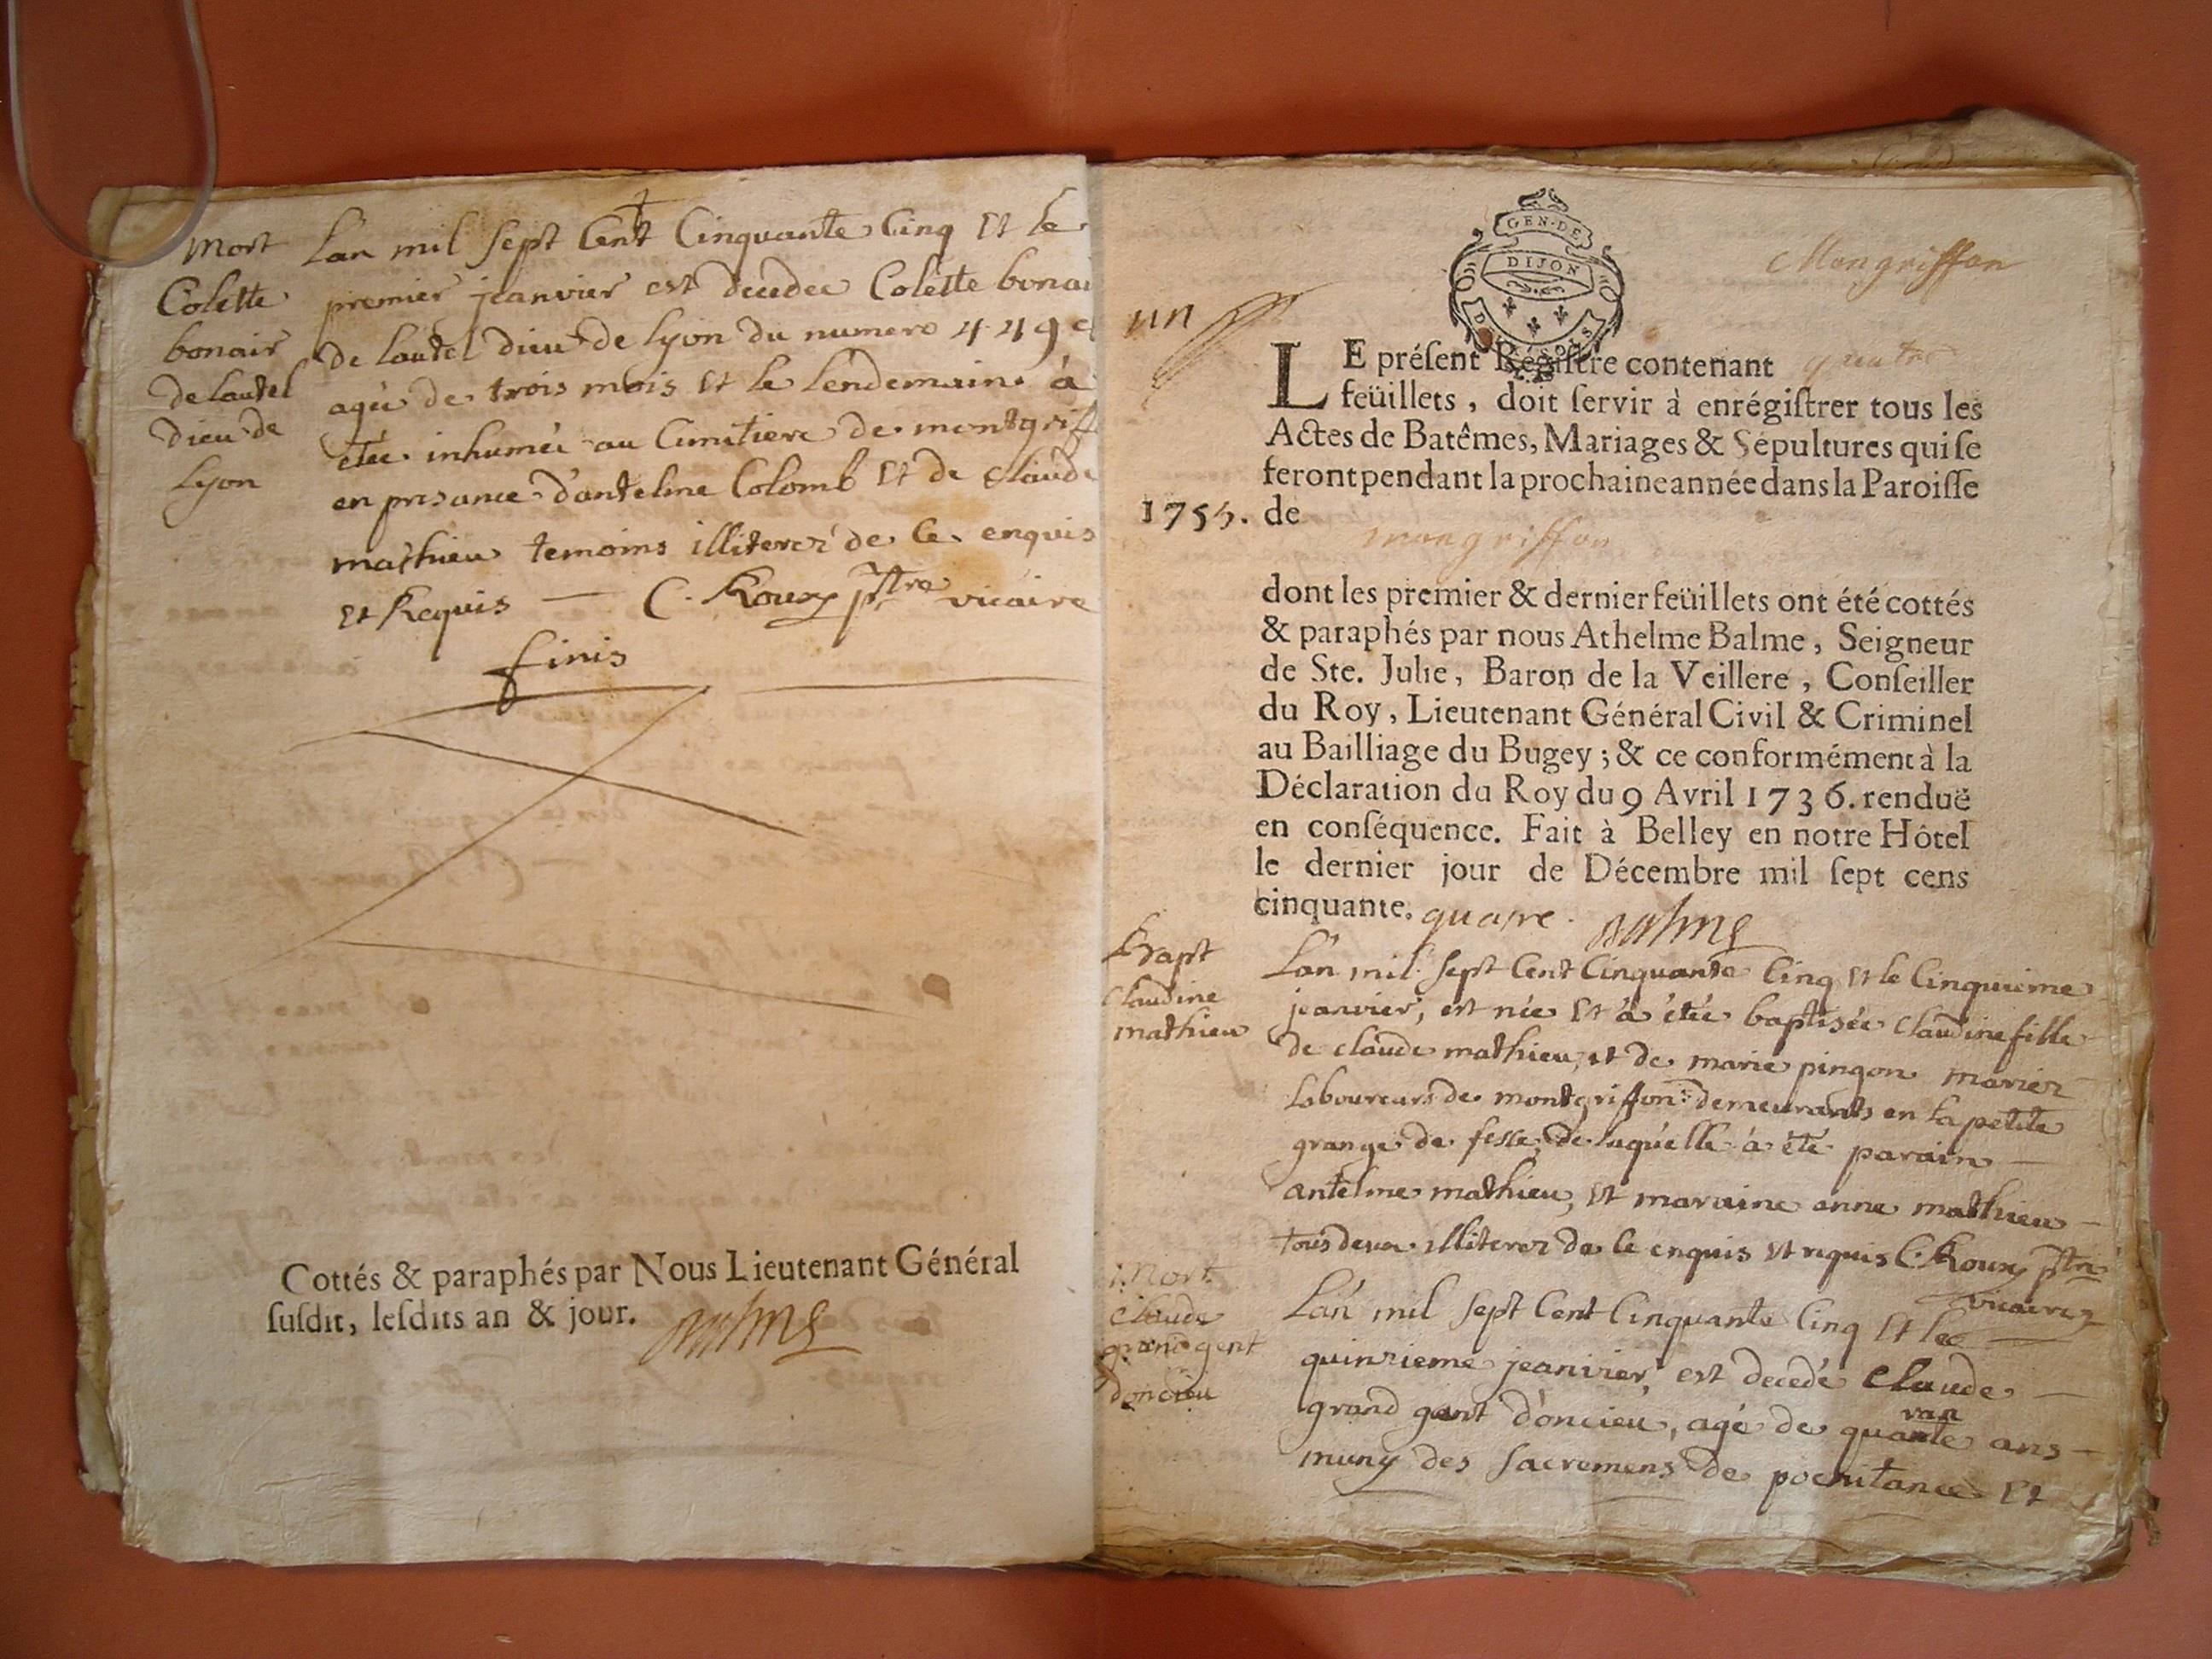 mort
Colette
bonair
de lautel
dieu de
Lyon
Lan mil sept Cent Cinquante Cinq Et le
premier jeanvier est decedee Colette bonai
de lautel dieu de lyon du numero 449
agée de trois mois Et le lendemain à
étée inhumée au Cimitiere de montgriff
en presance d'antelme Colomb Et de Claude
mathieu temoins illiterez de Ce enquis
et Requis — C. Roux ptre vicaire
finis
Cottés & paraphés par Nous Lieutenant Général
susdit, lesdits an & jour. Balme
GEN. DE
DIJON
Mongriffon
un
LE présent Régistre contenant quatre
feüillets, doit servir à enrégistrer tous les
Actes de Batêmes, Mariages & Sépultures qui se
feront pendant la prochaine année dans la Paroisse
1755. de
mongriffon
dont les premier & dernier feüillets ont été cottés
& paraphés par nous Athelme Balme, Seigneur
de Ste. Julie, Baron de la Veillere, Conseiller
du Roy, Lieutenant Général Civil & Criminel
au Bailliage du Bugey; & ce conformément à la
Déclaration du Roy du 9 Avril 1736. renduë
en conséquence. Fait à Belley en notre Hôtel
le dernier jour de Décembre mil sept cens
cinquante. quatre. Balme
Bapt
Claudine
mathieu
Lan mil sept Cent Cinquante Cinq Et le Cinquieme
jeanvier, est née Et à étée baptisée Claudine fille
de claude mathieu, et de marie pingon mariez
Laboureurs de montgriffon demeurants en la petite
grange de fesse, de laquelle à été parain —
antelme mathieu, Et maraine anne mathieu —
tous deux illiterez de Ce enquis Et requis C. Roux ptre
vicaire
Mort
Claude
grand gent
doncieu
Lan mil sept Cent Cinquante Cinq Et le —
quinzieme jeanvier, est decedé Claude —
grand gent d'oncieu, agé de quarante ans —
muny des sacremens de poenitance Et